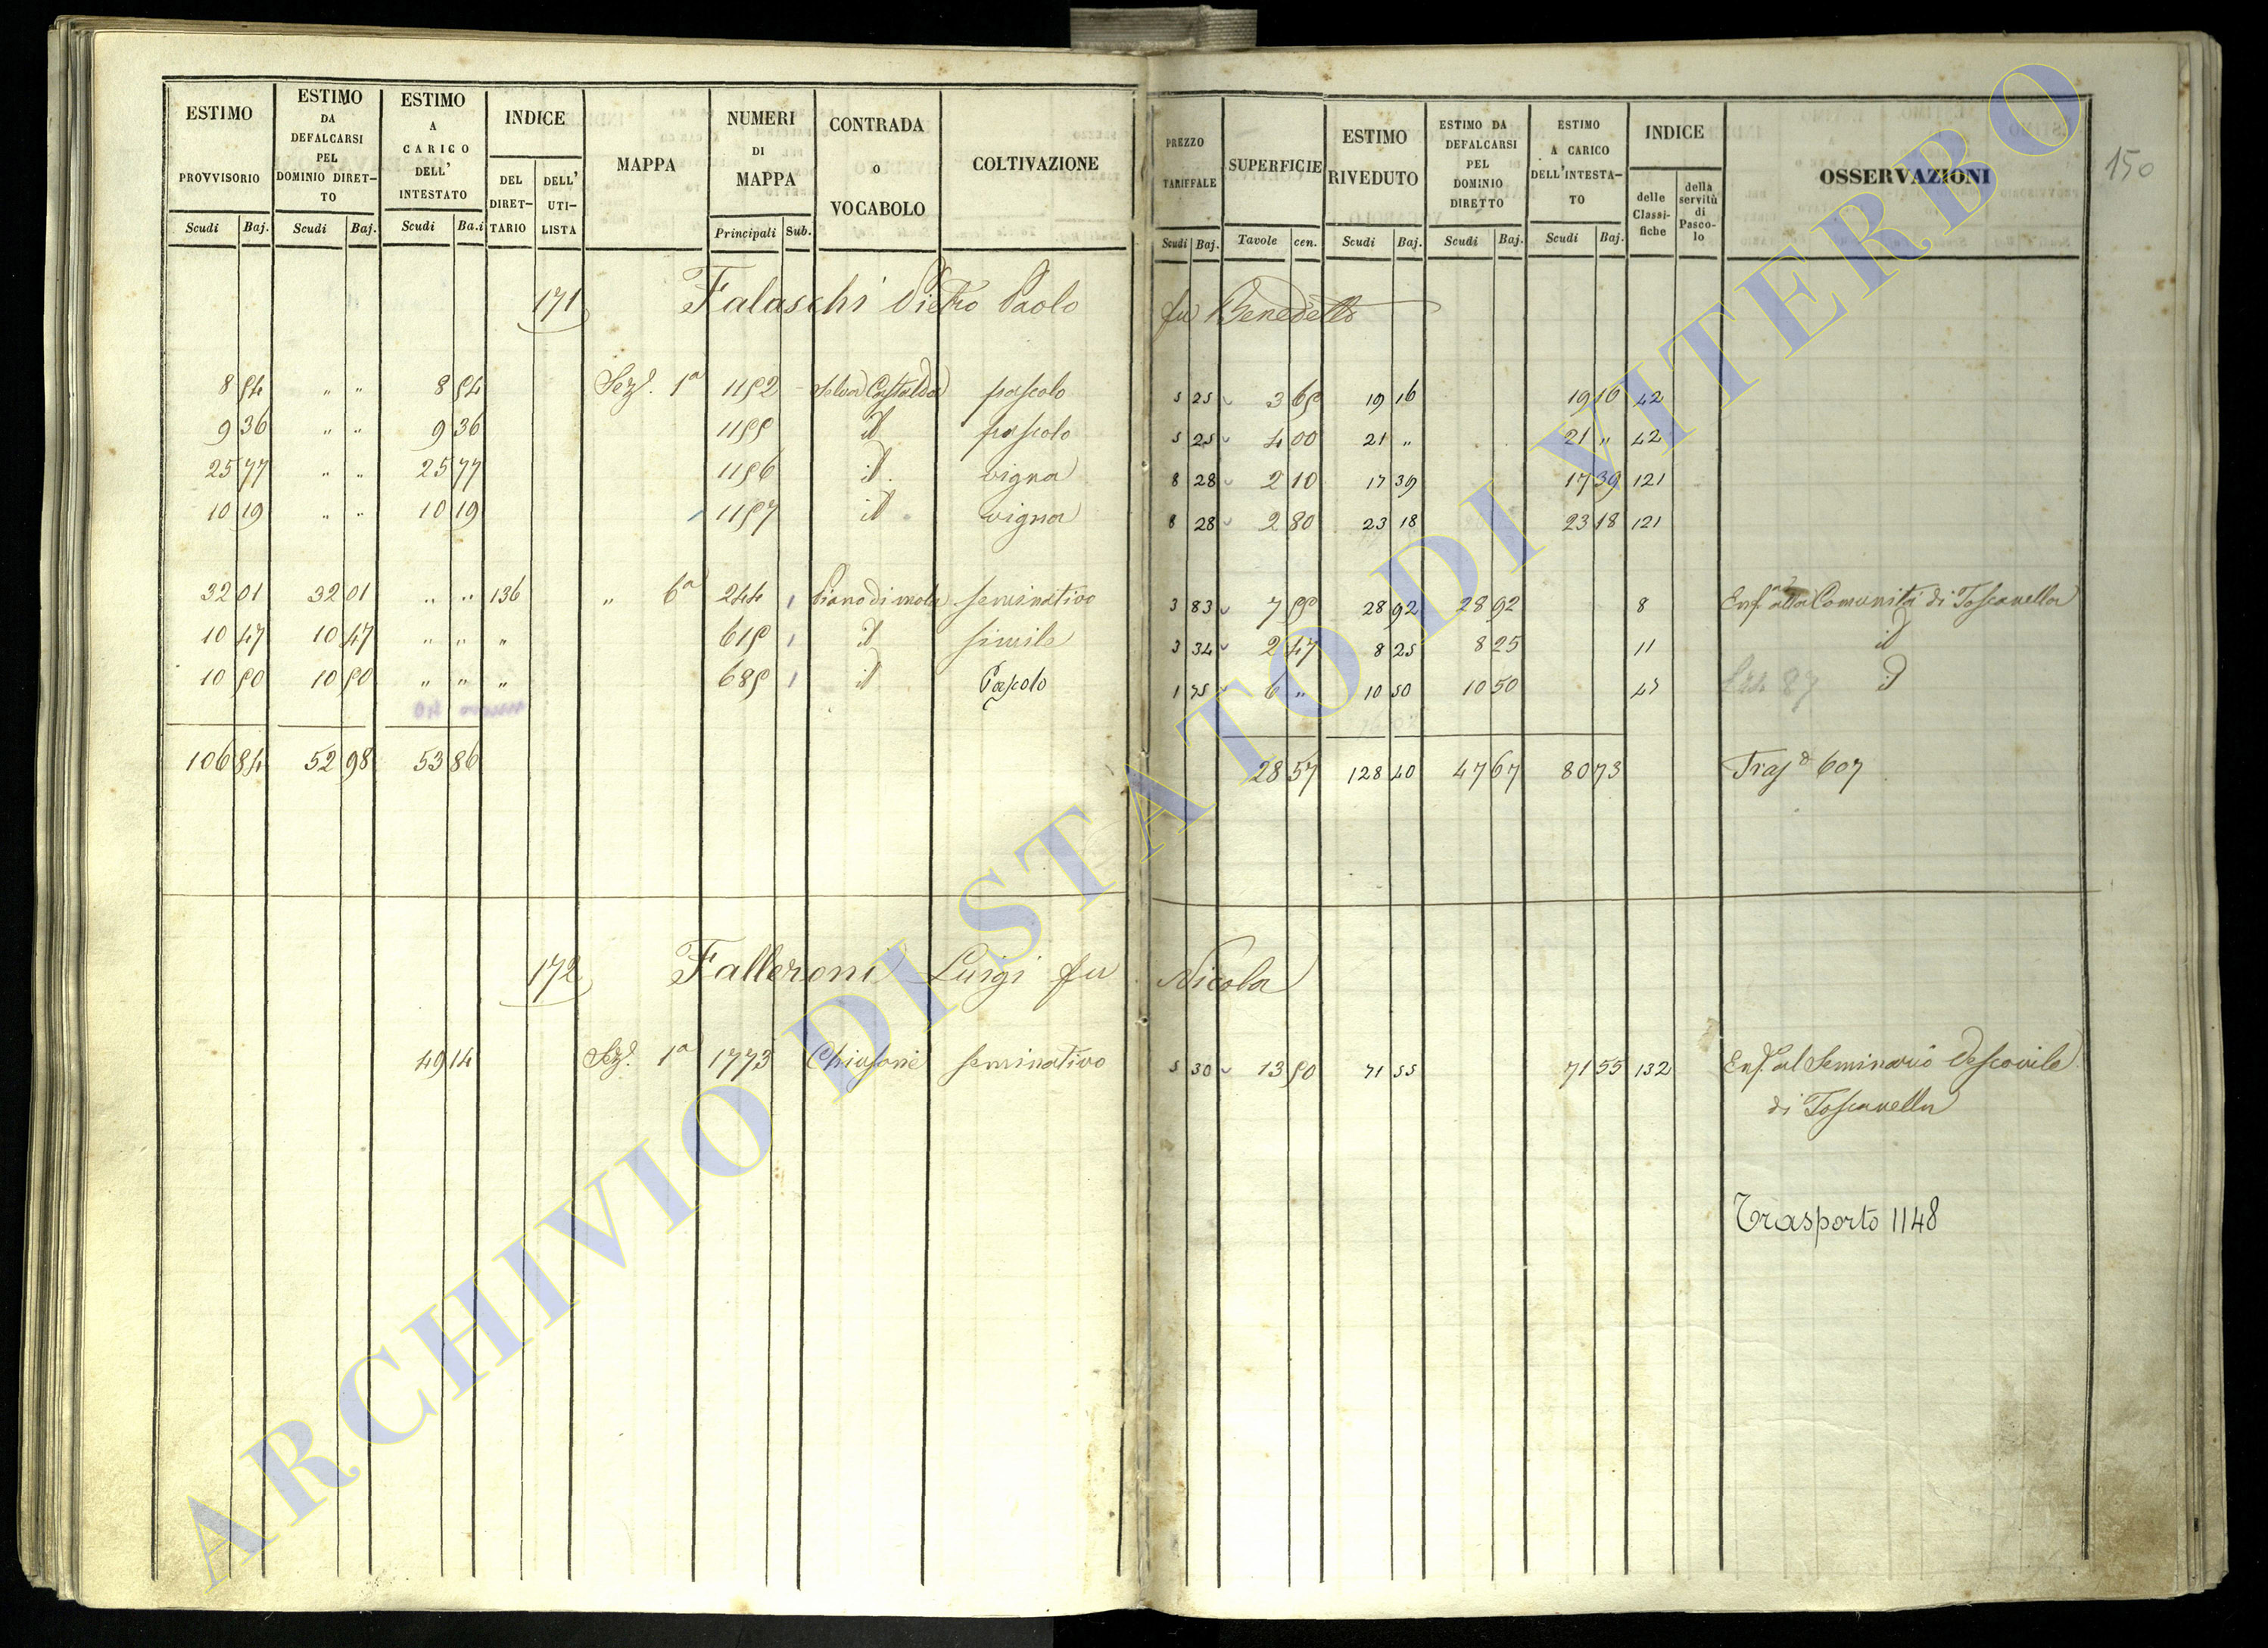 ESTIMO PROVVISORIO Scudi Baj.
ESTIMO DA DEFALCARSI PEL DOMINIO DIRETTO Scudi Baj.
ESTIMO A CARICO DELL' INTESTATO Scudi Ba.i
INDICE DEL DIRETTARIO DELL' UTILISTA
MAPPA
NUMERI DI MAPPA Principali Sub.
CONTRADA o VOCABOLO
COLTIVAZIONE
PREZZO TARIFFALE Scudi Baj.
SUPERFICIE Tavole cen.
ESTIMO RIVEDUTO Scudi Baj.
ESTIMO DA DEFALCARSI PEL DOMINIO DIRETTO Scudi Baj.
ESTIMO A CARICO DELL'INTESTATO Scudi Baj.
INDICE delle Classifiche della servitù di Pascolo
OSSERVAZIONI
150
171 Falaschi Pietro Paolo fu Benedetto
8 54 " " 8 54 Sez.e 1a 1152 Selva Castaldo pascolo 5 25 3 65 19 16 19 16 42
9 36 " " 9 36 1155 id pascolo 5 25 4 00 21 " 21 " 42
25 77 " " 25 77 1156 id. vigna 8 28 2 10 17 39 17 39 121
10 19 " " 10 19 1157 id vigna 8 28 2 80 23 18 23 18 121
32 01 32 01 " " 136 " 6a 244 Piano di mola seminativo 3 83 7 55 28 92 28 92 8 Enf.a alla Comunità di Toscanella
10 47 10 47 " " " 615 id simile 3 34 2 47 8 25 8 25 11 id
10 50 10 50 " " " 685 id Pascolo 1 75 6 " 10 50 10 50 47 87 id
106 84 52 98 53 86 28 57 128 40 47 67 80 73 Trasp.o 607
172 Falleroni Luigi fu Nicola
49 14 Sez.e 1a 1773 Chiusone seminativo 5 30 13 50 71 55 71 55 132 Enf.a al Seminario Vescovile
di Toscanella
Trasporto 1148
ARCHIVIO DI STATO DI VITERBO